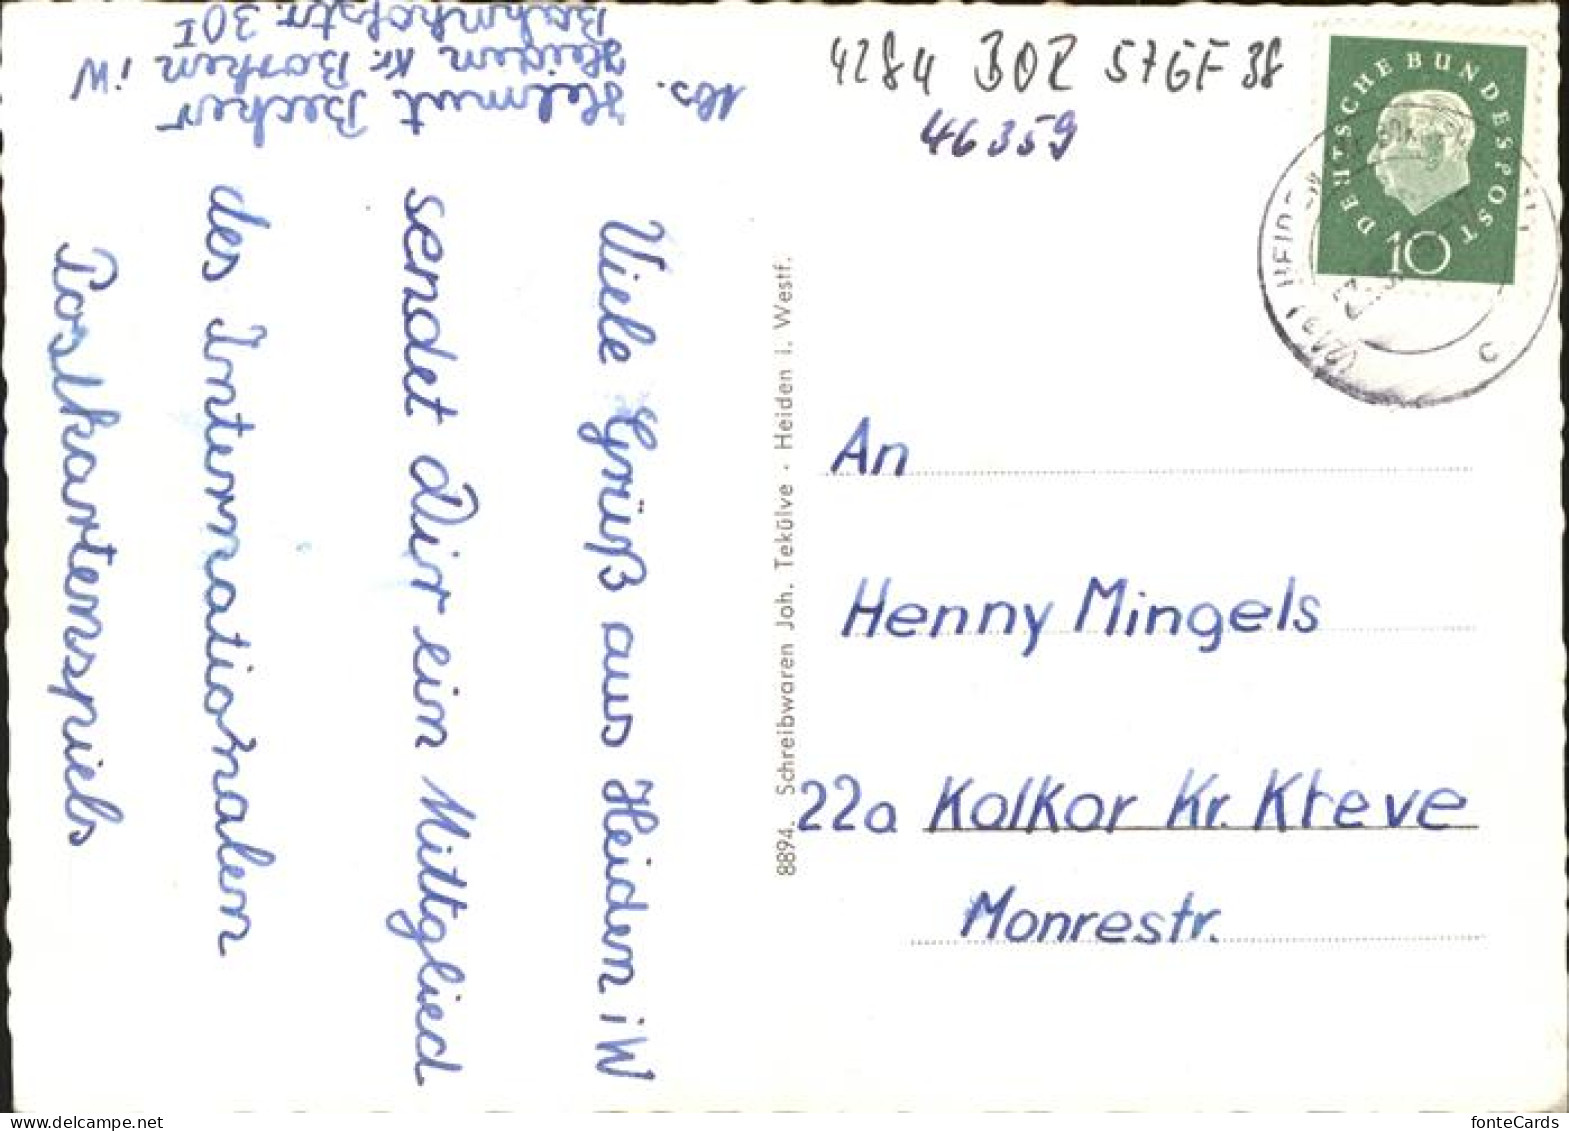 Abs.
Helmut Becker
Heiden Kr. Borken i W
Bahnhofstr. 30I
Viele Grüß aus Heiden i W
sendet Dir ein Mittglied
des Internationalen
Postkartenspiels
8894. Schreibwaren Joh. Tekülve · Heiden i. Westf.
4284 BOR 576F 38
46359
DEUTSCHE BUNDESPOST
10
(21a) HEIDEN
c
An
Henny Mingels
22a Kalkar Kr. Kleve
Monrestr.
fonteCards